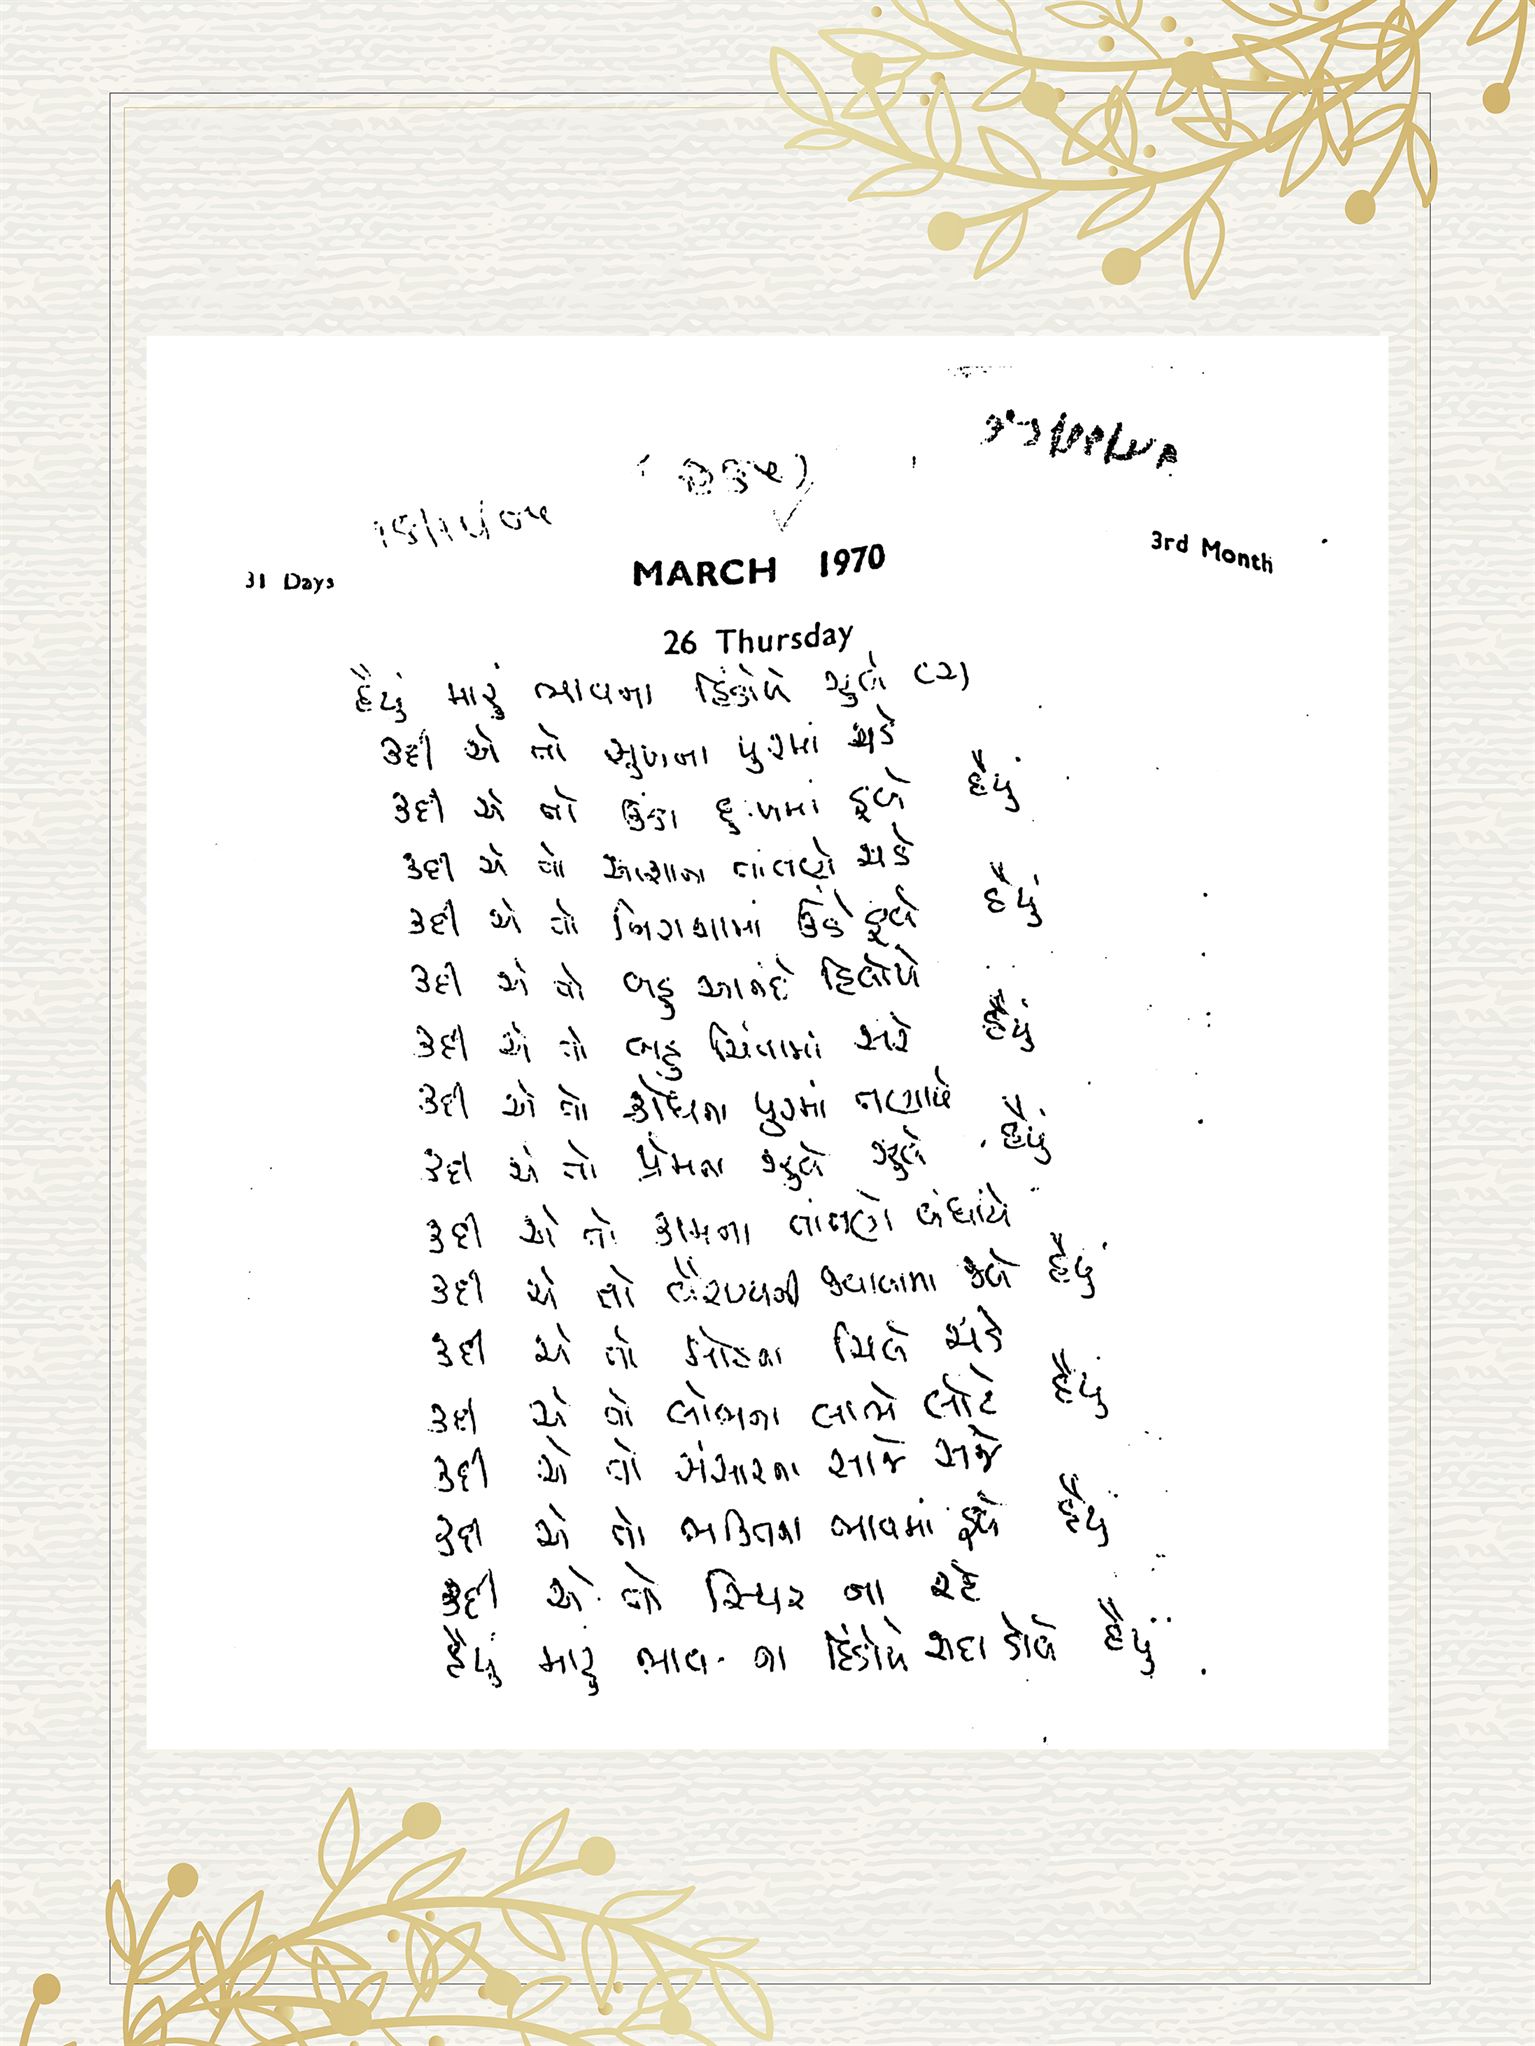 ૧૬/૧૧/૮૫
31 Days
MARCH 1970
3rd Month
26 Thursday
હૈયું મારું ભાવના હિંડોળે ઝુલે (૨)
કદી એ તો સુખના પુરમાં ચડે
કદી એ તો ઉંડા દુઃખમાં ડૂબે હૈયું
કદી એ તો આશાના તાંતણે ચડે
કદી એ તો નિરાશામાં ઉંડે ડૂબે હૈયું
કદી એ તો બહુ આનંદે હિલોળે
કદી એ તો બહુ ચિંતામાં સરે હૈયું
કદી એ તો ક્રોધના પુરમાં તણાયે
કદી એ તો પ્રેમના ઝુલે ઝુલે હૈયું
કદી એ તો કામના તાંતણે બંધાયે
કદી એ તો વૈરાગ્યની જ્વાળામાં જલે હૈયું
કદી એ તો મોહના ચિલે ચડે
કદી એ તો લોભના લાભે લોટે હૈયું
કદી એ તો સંસારના સાજ સજે
કદી એ તો ભક્તિના ભાવમાં ડૂબે હૈયું
કદી એ તો સ્થિર ના રહે
હૈયું મારું ભાવ ના હિંડોળે સદા ડોલે હૈયું